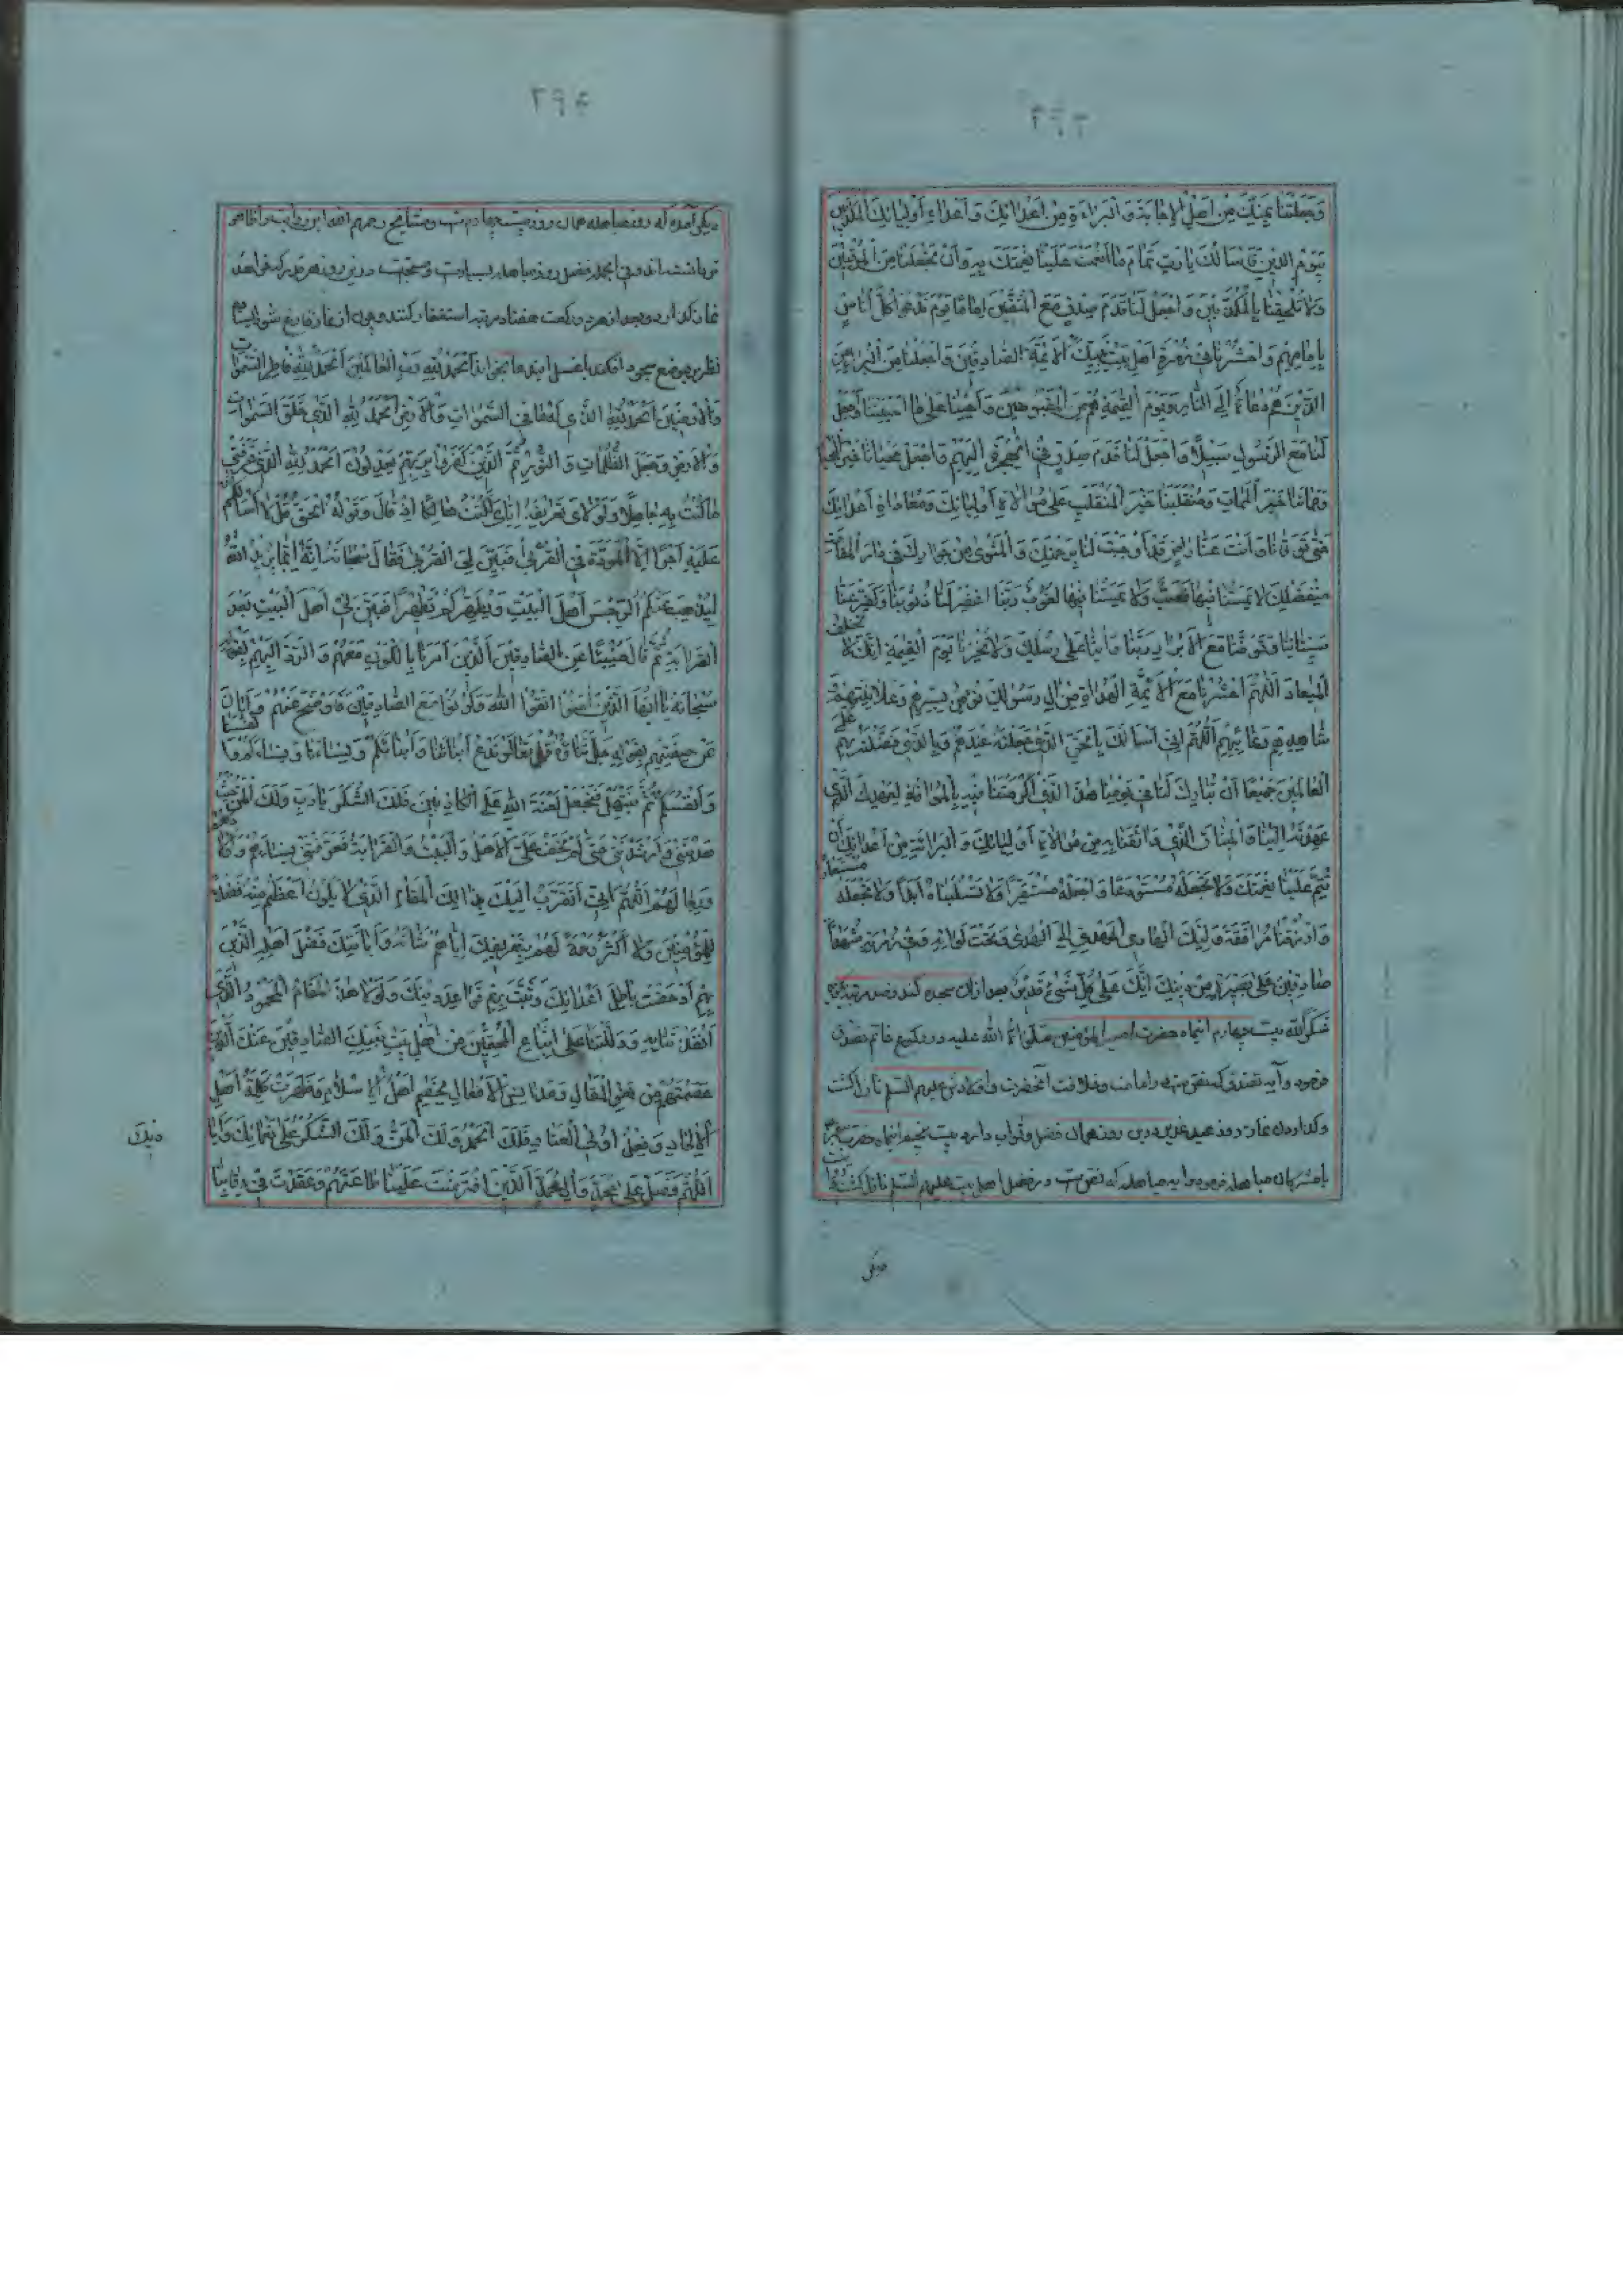 وَجَعَلْتَنَا بِمَنِّكَ مِنْ اَهْلِ الْاِجَابَةِ وَ الْبَرَاءَةِ مِنْ اَعْدَائِكَ وَ اَعْدَاءِ اَوْلِيَائِكَ الْمُكَذِّبِينَ
بِيَوْمِ الدِّينِ فَاَسْاَلُكَ يَا رَبِّ تَمَامَ مَا اَنْعَمْتَ عَلَيْنَا نِعْمَتَكَ وَ اَنْ تَجْعَلَنَا مِنَ الْمُوقِنِينَ
وَلَا تُلْحِقْنَا بِالْمُكَذِّبِينَ وَ اجْعَلْ لَنَا قَدَمَ صِدْقٍ مَعَ الْمُتَّقِينَ اِمَامًا يَوْمَ تَدْعُو كُلَّ اُنَاسٍ
بِاِمَامِهِمْ وَ احْشُرْنَا فِي زُمْرَةِ اَهْلِ بَيْتِ نَبِيِّكَ الْاَئِمَّةِ الصَّادِقِينَ وَ اجْعَلْنَا مِنَ الْبُرَآءِ مِنَ
الَّذِينَ هُمْ دُعَاةٌ اِلَى النَّارِ وَ يَوْمَ الْقِيمَةِ هُمْ مِنَ الْمَقْبُوحِينَ وَ اَحْيِنَا عَلَى مَا اَحْيَيْتَنَا وَ اجْعَلْ
لَنَا مَعَ الرَّسُولِ سَبِيلًا وَ اجْعَلْ لَنَا قَدَمَ صِدْقٍ فِي الْهِجْرَةِ اِلَيْهِمْ وَ اجْعَلْ مَحْيَانَا خَيْرَ الْمَحْيَا
وَ مَمَاتَنَا خَيْرَ الْمَمَاتِ وَ مُنْقَلَبَنَا خَيْرَ الْمُنْقَلَبِ عَلَى مُوَالَاةِ اَوْلِيَائِكَ وَ مُعَادَاةِ اَعْدَائِكَ
حَتَّى تَوَفَّانَا وَ اَنْتَ عَنَّا رَاضٍ قَدْ اَوْجَبْتَ لَنَا جَنَّتَكَ وَ الْمَثْوَى مِنْ جِوَارِكَ فِي دَارِ الْمُقَامَةِ
مِنْ فَضْلِكَ لَا يَمَسُّنَا فِيهَا نَصَبٌ وَلَا يَمَسُّنَا فِيهَا لُغُوبٌ رَبَّنَا اغْفِرْ لَنَا ذُنُوبَنَا وَ كَفِّرْ عَنَّا
سَيِّئَاتِنَا وَ تَوَفَّنَا مَعَ الْاَبْرَارِ رَبَّنَا وَ آتِنَا عَلَى رُسُلِكَ وَلَا تُخْزِنَا يَوْمَ الْقِيمَةِ اِنَّكَ لَا تُخْلِفُ
الْمِيعَادَ اَللّٰهُمَّ احْشُرْنَا مَعَ الْاَئِمَّةِ الْهُدَاةِ مِنْ آلِ رَسُولِكَ نُؤْمِنُ بِسِرِّهِمْ وَ عَلَانِيَتِهِمْ وَ
شَاهِدِهِمْ وَ غَائِبِهِمْ اَللّٰهُمَّ اِنِّي اَسْاَلُكَ بِالْحَقِّ الَّذِي جَعَلْتَهُ عِنْدَهُمْ وَ بِالَّذِي فَضَّلْتَهُمْ بِهِ عَلَى
الْعَالَمِينَ جَمِيعًا اَنْ تُبَارِكَ لَنَا فِي يَوْمِنَا هَذَا الَّذِي اَكْرَمْتَنَا فِيهِ بِالْمُوَافَاةِ لِعَهْدِكَ الَّذِي
عَهِدْتَهُ اِلَيْنَا وَ الْمِيثَاقِ الَّذِي وَاثَقْتَنَا بِهِ مِنْ مُوَالَاةِ اَوْلِيَائِكَ وَ الْبَرَاءَةِ مِنْ اَعْدَائِكَ اَنْ
تُتِمَّ عَلَيْنَا نِعْمَتَكَ وَلَا تَجْعَلَهُ مُسْتَوْدَعًا وَ اجْعَلْهُ مُسْتَقِرًّا وَلَا تَسْلُبْنَاهُ اَبَدًا وَلَا تَجْعَلْهُ مُسْتَعَارًا
وَ ارْزُقْنَا مُرَافَقَةَ وَلِيِّكَ الْهَادِي الْمَهْدِيِّ اِلَى الْهُدَى وَ تَحْتَ لِوَائِهِ وَ فِي زُمْرَتِهِ شُهَدَاءَ
صَادِقِينَ عَلَى بَصِيرَةٍ مِنْ دِينِكَ اِنَّكَ عَلَى كُلِّ شَيْءٍ قَدِيرٌ بعد ازان سجده کند و صد مرتبه بگوید
شُكْرًا لِلّٰه بیست چهارم اینماه حضرت امیر المؤمنین صلوات الله علیه در رکوع خاتم تصدق
فرمود و آیه تصدق که در امامت و خلافت آنحضرت و اولادش علیهم السلم نازل گشت
وگذاردن نماز روز عید غدیر درین روز همان فضل و ثواب دارد بیست پنجم اینماه حضرت
مباهله فرمود و آیه مباهله که در فضل اهل بیت علیهم السلم نازل گشت
دیگر
۲۹۵
دیگر آمده که روز مباهله همان روز بیست چهارم است و مشایخ رحمهم الله این روایت را
نماز گذارد و بعد از هر دو رکعت هفتاد مرتبه استغفار کنند و چون از نماز فارغ شود
نظر بر موضع سجود افکند بخواند اَلْحَمْدُ لِلّٰهِ رَبِّ الْعَالَمِينَ اَلْحَمْدُ لِلّٰهِ فَاطِرِ السَّمَوَاتِ
وَ الْاَرَضِينَ اَلْحَمْدُ لِلّٰهِ الَّذِي لَهُ مَا فِي السَّمٰوَاتِ وَ الْاَرْضِ اَلْحَمْدُ لِلّٰهِ الَّذِي خَلَقَ السَّمٰوَاتِ
وَ الْاَرْضَ وَ جَعَلَ الظُّلُمَاتِ وَ النُّورَ ثُمَّ الَّذِينَ كَفَرُوا بِرَبِّهِمْ يَعْدِلُونَ اَلْحَمْدُ لِلّٰهِ الَّذِي عَرَّفَنِي
مَا كُنْتُ بِهِ جَاهِلًا وَ لَوْلَا تَعْرِيفُهُ اِيَّايَ لَكُنْتُ هَالِكًا اِذْ قَالَ وَ قَوْلُهُ الْحَقُّ قُلْ لَا اَسْاَلُكُمْ
عَلَيْهِ اَجْرًا اِلَّا الْمَوَدَّةَ فِي الْقُرْبَى فَبَيَّنَ لِيَ الْقُرْبَى فَقَالَ سُبْحَانَهُ اِنَّمَا يُرِيدُ اللّٰهُ
لِيُذْهِبَ عَنْكُمُ الرِّجْسَ اَهْلَ الْبَيْتِ وَ يُطَهِّرَكُمْ تَطْهِيرًا فَبَيَّنَ لِي اَهْلَ الْبَيْتِ بَعْدَ
الْقَرَابَةِ ثُمَّ قَالَ مُبَيِّنًا عَنِ الصَّادِقِينَ الَّذِينَ اَمَرَنَا بِالْكَوْنِ مَعَهُمْ وَ الرَّدِّ اِلَيْهِمْ بِقَوْلِهِ
سُبْحَانَهُ يَا اَيُّهَا الَّذِينَ آمَنُوا اتَّقُوا اللّٰهَ وَ كُونُوا مَعَ الصَّادِقِينَ فَاَوْضَحَ عَنْهُمْ وَ اَبَانَ
عَنْ صِفَتِهِمْ بِقَوْلِهِ جَلَّ ثَنَاؤُهُ قُلْ تَعَالَوْا نَدْعُ اَبْنَاءَنَا وَ اَبْنَاءَكُمْ وَ نِسَاءَنَا وَ نِسَاءَكُمْ وَ اَنْفُسَنَا
وَ اَنْفُسَكُمْ ثُمَّ نَبْتَهِلْ فَنَجْعَلْ لَعْنَةَ اللّٰهِ عَلَى الْكَاذِبِينَ فَلَكَ الشُّكْرُ يَا رَبِّ وَ لَكَ الْمَنُّ حَيْثُ
هَدَيْتَنِي وَ اَرْشَدْتَنِي حَتَّى لَمْ يَخْفَ عَلَيَّ الْاَهْلُ وَ الْبَيْتُ وَ الْقَرَابَةُ فَعَرَّفْتَنِي نِسَاءَهُمْ وَ اَوْلَادَهُمْ
وَ رِجَالَهُمْ اَللّٰهُمَّ اِنِّي اَتَقَرَّبُ اِلَيْكَ بِذَلِكَ الْمَقَامِ الَّذِي لَا يَكُونُ اَعْظَمَ مِنْهُ فَضْلًا
لِلْمُؤْمِنِينَ وَلَا اَكْثَرَ رَحْمَةً لَهُمْ بِتَعْرِيفِكَ اِيَّاهُمْ شَانَهُ وَ اِبَانَتِكَ فَضْلَ اَهْلِهِ الَّذِينَ
بِهِمْ اَدْحَضْتَ بَاطِلَ اَعْدَائِكَ وَ ثَبَّتَّ بِهِمْ قَوَاعِدَ دِينِكَ وَ لَوْلَا هَذَا الْمَقَامُ الْمَحْمُودُ الَّذِي
اَنْقَذْتَنَا بِهِ وَ دَلَلْتَنَا عَلَى اتِّبَاعِ الْمُحِقِّينَ مِنْ اَهْلِ بَيْتِ نَبِيِّكَ الصَّادِقِينَ عَنْكَ الَّذِينَ
عَصَمْتَهُمْ مِنْ لَغْوِ الْمَقَالِ وَ مَدَانِسِ الْاَفْعَالِ لَخُصِمَ اَهْلُ الْاِسْلَامِ وَ ظَهَرَتْ كَلِمَةُ اَهْلِ
الْاِلْحَادِ وَ فِعْلُ اُولِي الْعِنَادِ فَلَكَ الْحَمْدُ وَ لَكَ الْمَنُّ وَ لَكَ الشُّكْرُ عَلَى نَعْمَائِكَ وَ اَيَادِيكَ
اَللّٰهُمَّ فَصَلِّ عَلَى مُحَمَّدٍ وَ آلِ مُحَمَّدٍ الَّذِينَ افْتَرَضْتَ عَلَيْنَا طَاعَتَهُمْ وَ عَقَدْتَ فِي رِقَابِنَا